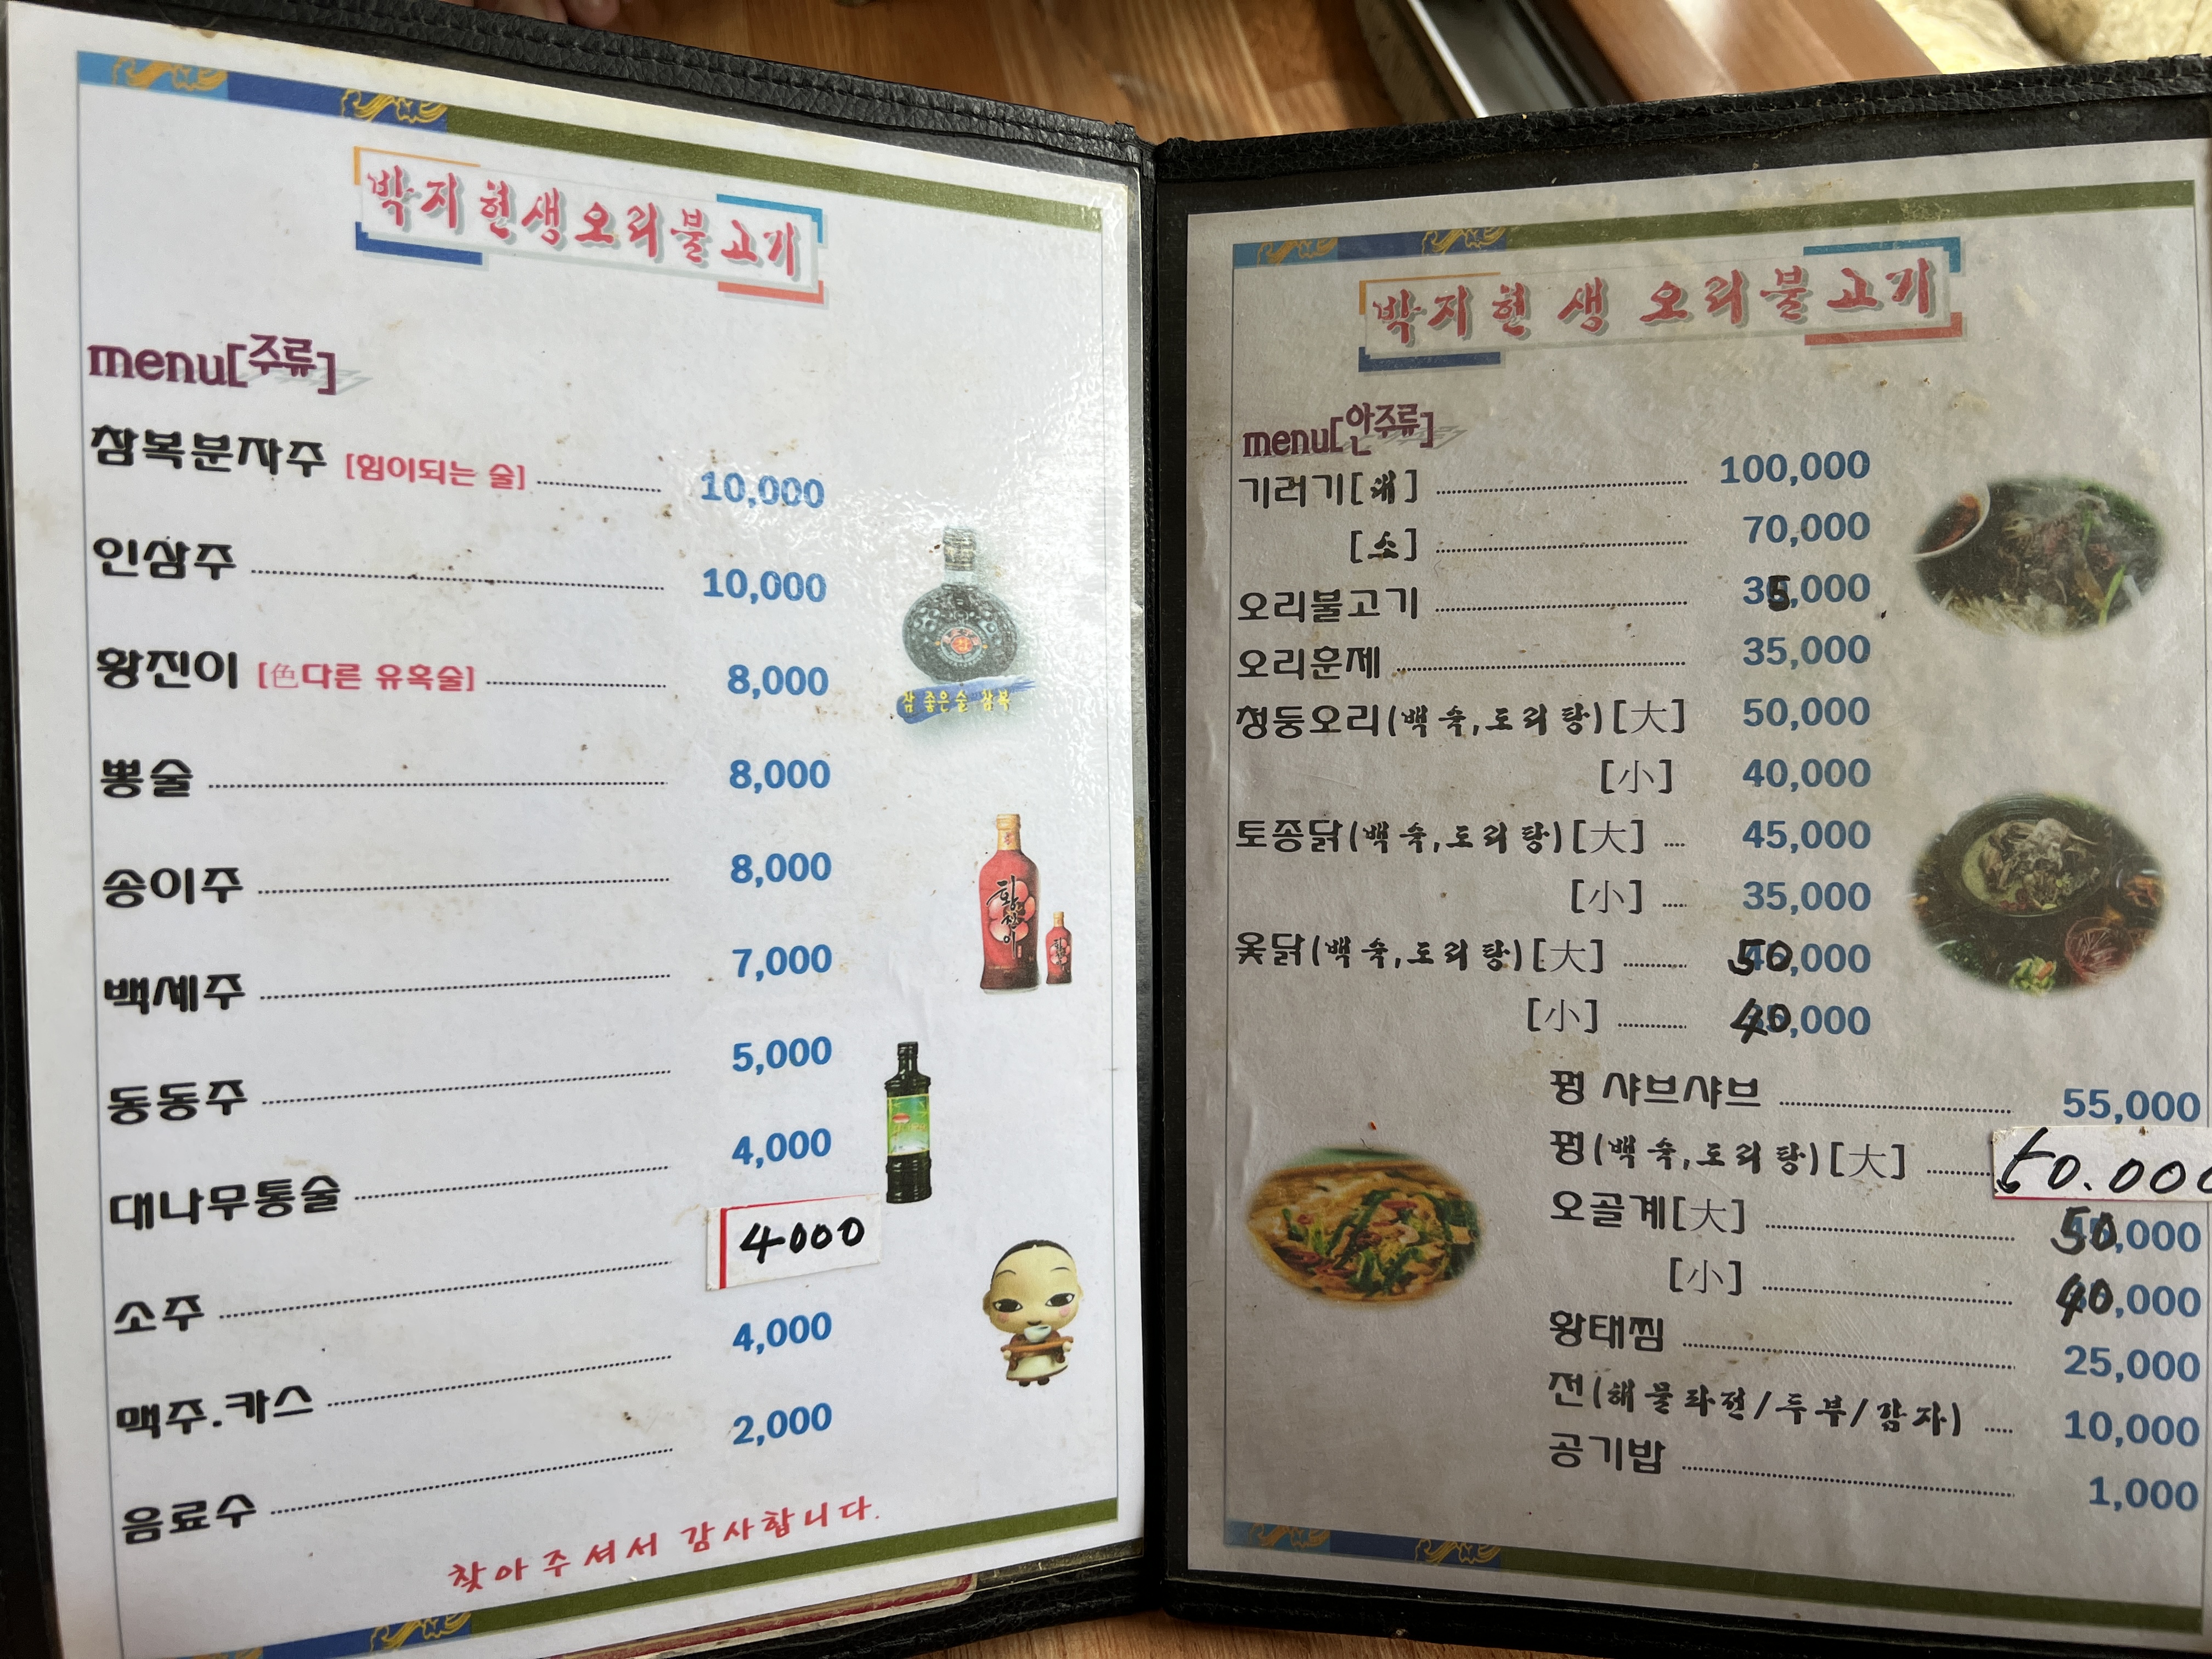 박지현생오리불고기
menu[주류]
참복분자주 [힘이되는 술] 10,000
인삼주 10,000
황진이 [色다른 유혹술] 8,000
뽕술 8,000
송이주 8,000
백세주 7,000
동동주 5,000
대나무통술 4,000
소주 4000
맥주.카스 4,000
음료수 2,000
참 좋은술 참복
황진이
찾아주셔서 감사합니다.
박지현 생 오리불고기
menu[안주류]
기러기[대] 100,000
[소] 70,000
오리불고기 35,000
오리훈제 35,000
청둥오리(백숙,도리탕)[大] 50,000
[小] 40,000
토종닭(백숙,도리탕)[大] 45,000
[小] 35,000
옻닭(백숙,도리탕)[大] 50,000
[小] 40,000
꿩 샤브샤브 55,000
꿩(백숙,도리탕)[大] 60.000
오골계[大] 50,000
[小] 40,000
황태찜 25,000
전(해물파전/두부/감자) 10,000
공기밥 1,000